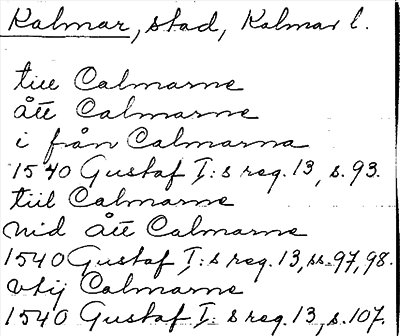 Kalmar, stad, Kalmar l.
till Calmarne
ått Calmarne
i från Calmarna
1540 Gustaf I:s reg. 13, s. 93.
tiil Calmarne
nid ått Calmarne
1540 Gustaf I:s reg. 13, ss. 97, 98.
vtij Calmarne
1540 Gustaf I:s reg. 13, s. 107.